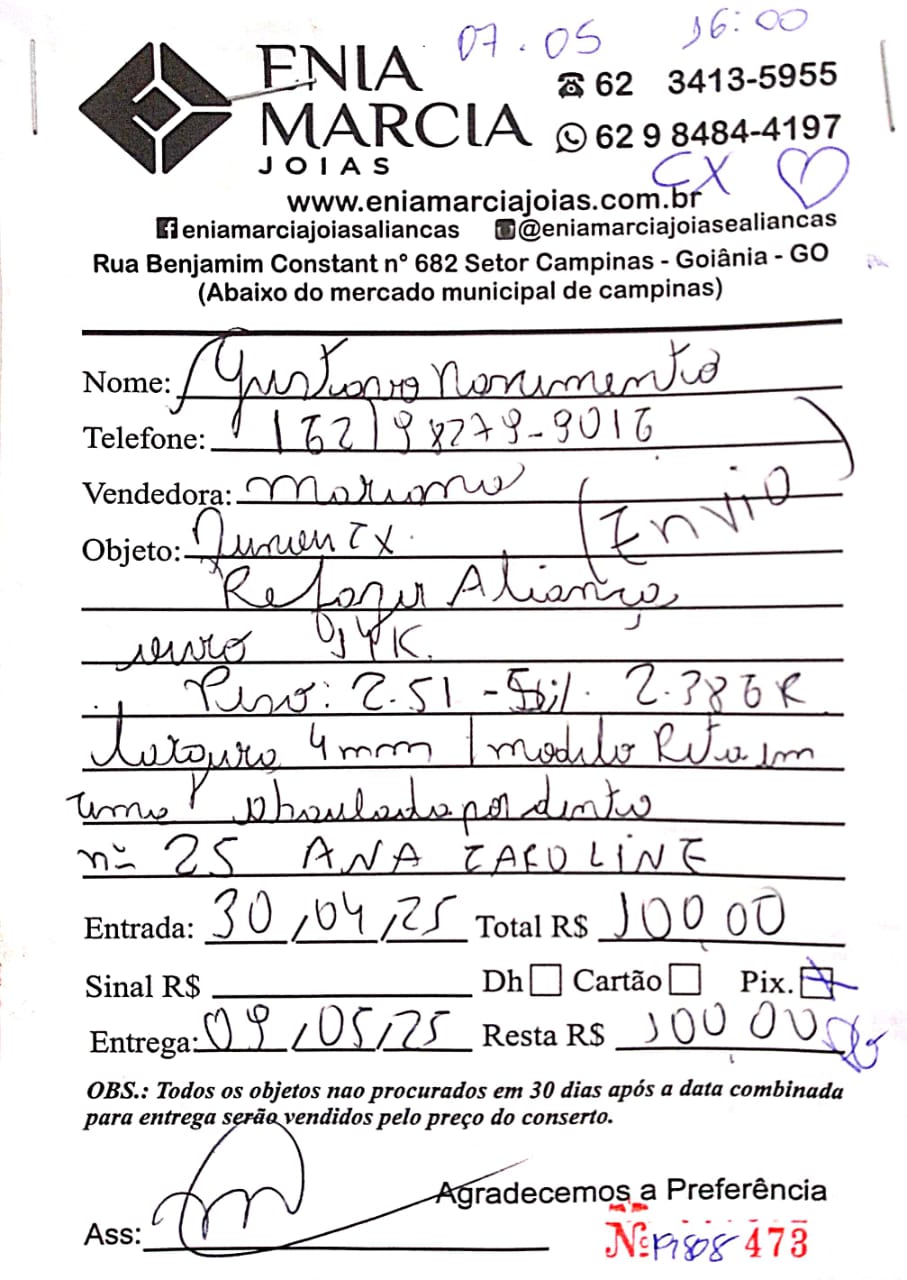 07.05 16:00
ENIA
MARCIA
JOIAS
62 3413-5955
62 9 8484-4197
CX
www.eniamarciajoias.com.br
eniamarciajoiasaliancas @eniamarciajoiasealiancas
Rua Benjamim Constant nº 682 Setor Campinas - Goiânia - GO
(Abaixo do mercado municipal de campinas)
Nome: Gustavo
Telefone: (62) 98279-9016
Vendedora:
Objeto: (Envio)
Refazer Aliança
ouro 14K.
Peso: 2.51 - 2.38
Largura 4mm / modelo Reta em
cima abaulada por dentro
nº 25 ANA CAROLINE
Entrada: 30/04/25 Total R$ 100 00
Sinal R$ Dh Cartão Pix.
Entrega: 09/05/25 Resta R$ 100 00
OBS.: Todos os objetos nao procurados em 30 dias após a data combinada
para entrega serão vendidos pelo preço do conserto.
Agradecemos a Preferência
Ass:
Nº 473